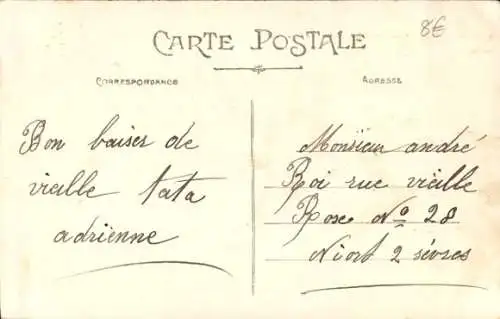 8€
CARTE POSTALE
CORRESPONDANCE
ADRESSE
Bon baiser de
vieille tata
adrienne
Monsieur andré
Roi rue vieille
Rose No 28
Niort 2 sévres